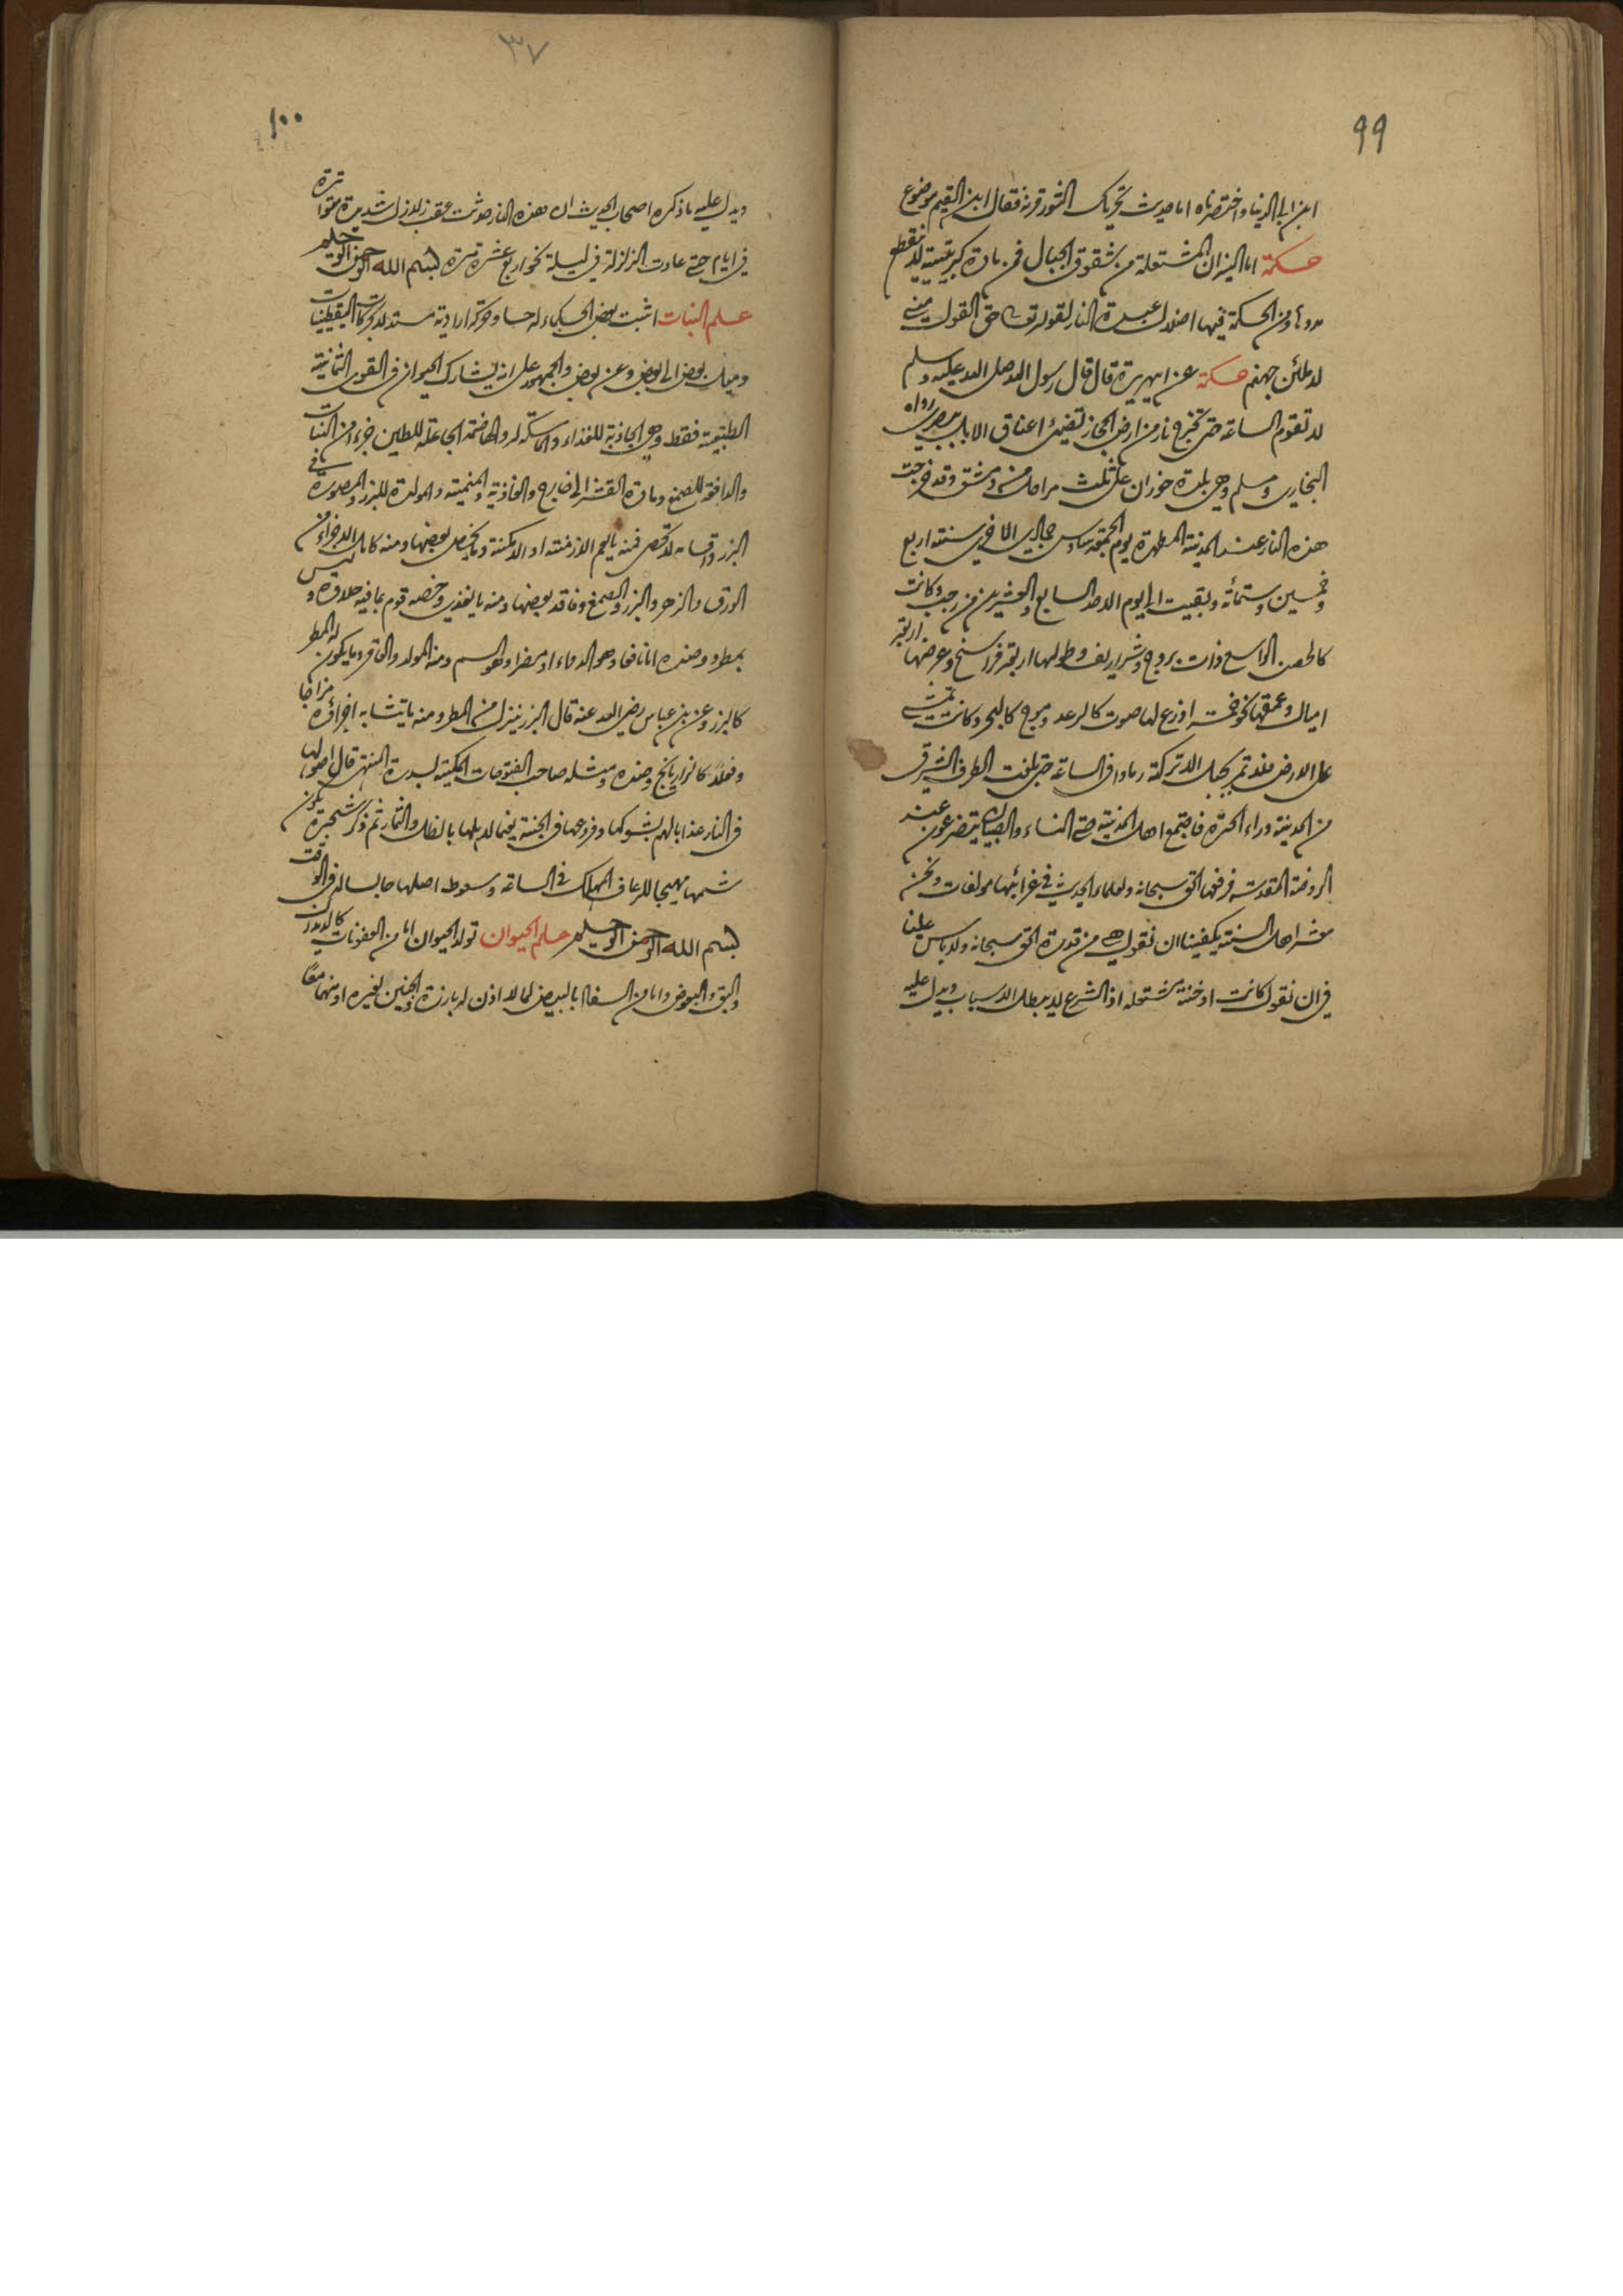 ٩٩
ابن ابي الدنيا واختصرناه اما حديث تحريك الثور قرنه فقال ابن القيم موضوع
حكمة اما النيران المشتعلة من شقوق الجبال فمن مادة كبريتية لا تنقطع
مددها ومن الحكمة فيها اضلال عبدة النار لقوله تعالى حق القول مني
لاملئن جهنم حكمة عن ابي هريرة قال قال رسول الله صلى الله عليه وسلم
لا تقوم الساعة حتى تخرج نار من ارض الحجاز تضيئ اعناق الابل ببصرى رواه
البخاري ومسلم وهي بلدة حوران على ثلث مراحل من دمشق وقد خرجت
هذه النار عند المدينة المطهرة يوم الجمعة سادس جمادي الاخرى سنة اربع
وخمسين وستمائة وبقيت الى يوم الاحد السابع والعشرين من رجب وكانت
كالحصن الواسع ذات بروج وشراريف وطولها اربعة فراسخ وعرضها اربعة
اميال وعمقها نحو خمسة اذرع لها صوت كالرعد وموج كالبحر وكانت تمشي
على الارض فلا تمر بجبل الا تركته رمادا في الساعة حتى بلغت الطرف الشرقي
من المدينة وراء الحرة فاجتمع اهل المدينة حتى النساء والصبيان يتضرعون عند
الروضة المقدسة فرفعها الحق سبحانه ولعلماء الحديث في غرائبها مولفات ونحن
معشر اهل السنة يكفينا ان نقول هي من قدرة الحق سبحانه ولا باس علينا
في ان نقول كانت ادخنة مشتعلة اذ الشرع لا يبطل الاسباب ويدل عليه
٣٧
١٠٠
ويدل عليه ما ذكره اصحاب الحديث ان هذه النار حدثت عقب زلازل شديدة متواترة
في ايام حتى عادت الزلزلة في ليلة نحو اربع عشرة مرة بسم الله الرحمن الرحيم
علم النبات اثبت بعض الحكماء له حسا وحركة ارادية مستدلا بحركات اليقطينيات
وميل بعض الى بعض وعن بعض والجمهور على انه يشارك الحيوان في القوى الثمانية
الطبيعية فقط وهي الجاذبة للغذاء والماسكة له والهاضمة الجاعلة للطين جزءا من النبات
والدافعة للصمغ ومادة القشر الى خارج والغاذية والمنمية والمولدة للبزر والمصورة في
البزر واقسامه لا تحصى فمنه ما يعم الازمنة او الامكنة وما يخص بعضها ومنه كامل الاجزاء من
الورق والزهر والبزر والصمغ وفاقد بعضها ومنه ما يغذي وخصه قوم بما فيه حلاوة وليس
بمطرد وضده اما نافعا وهو الدواء او مضرا وهو السم ومنه المولد والعاقر وما يكون له المطر
كالبزر وعن بن عباس رضي الله عنه قال البزر ينزل من المطر ومنه ما يتشابه اجزاؤه مزاجا
وفعلا كالرازيانج وضده ومثله صاحب الفتوحات المكية لسدرة المنتهى قال اصولها
في النار عذابا لهم بشوكها وفروعها في الجنة نعيما لاهلها بالظل والثمار ثم ذكر شجرة يكون
شمها مهيجا للرعاف المهلك في الساعة وسعوط اصلها حابسا له في الوقت
بسم الله الرحمن الرحيم علم الحيوان تولد الحيوان اما من العفونات كالديدان
والبق والبعوض واما من السفاد اما بالبيض لما لا اذن له بارزة والجنين لغيره او منهما معًا